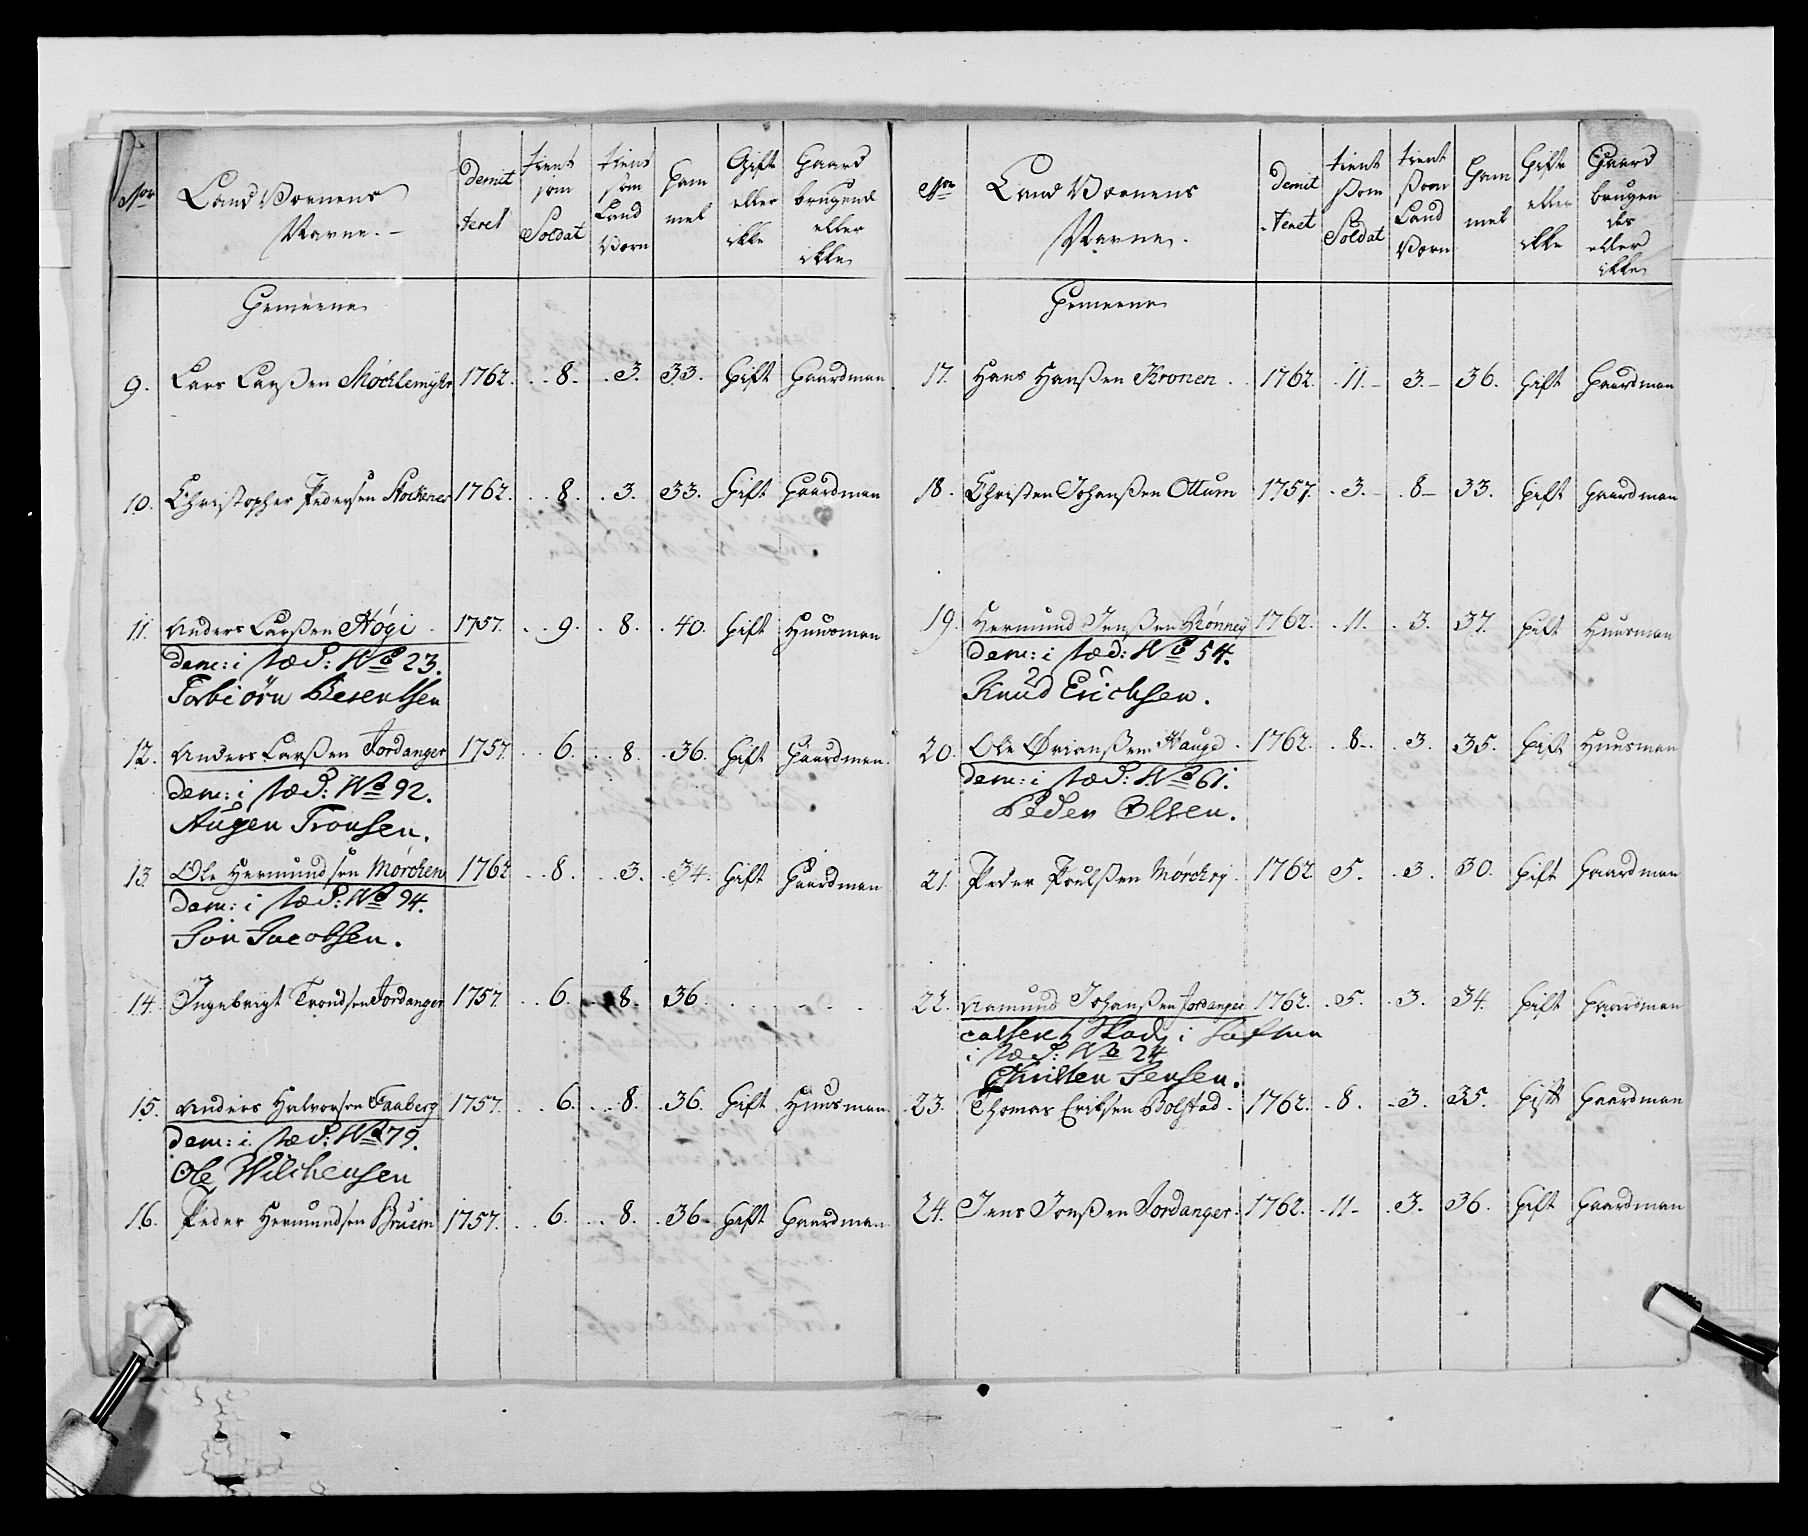 No Land Wærnens Navne. Demitteret tient som Soldat tient som Land Værn Gammel Gift eller ikke Gaard brugend eller ikke
Gemeene
9. Lars Larßen Møchlemyhr 1762. 8. 3. 33. Gift Gaardman
10. Christopher Pedersen Stockenes 1762. 8. 3. 33. Gift Gaardman
11. Anders Larßen Høgi 1757. 9. 8. 40. Gift Huusman
Dem: i stæd: No 23.
Torbiørn Berentsen
12. Anders Larßen Jordanger 1757. 6. 8. 36. Gift Gaardman.
Dem: i stæd: No 92.
Augen Tronsen.
13. Ole Hermundsen Mørchen 1762 8. 3. 34. Gift Gaardman
Dem: i stæd: No 94.
Jon Jacobsen.
14. Ingebrigt Trondsen Jordanger 1757. 6. 8. 36.
15. Anders Halvorsen Faaberg 1757. 6. 8. 36. Gift Huusman
Dem: i stæd: No 79.
Ole Wilchensen
16. Peder Hermundsen Bruem 1757. 6. 8. 36. Gift Gaardman
No Land Wærnens Navne. Demitteret tient som Soldat tient som Land Værn Gammel Gift eller ikke Gaard brugendes eller ikke
Gemeene
17. Hans Hanßen Kronen 1762. 11. 3. 36. Gift Gaardman
18. Christen Johanßen Ottum 1757. 3. 8 33. Gift Gaardman
19. Hermund Jenßen Rønney 1762. 11. 3. 37. Gift Huusman
Dem: i stæd: No 54.
Knud Erichsen.
20. Ole Ørianßen Haugd 1762. 8. 3. 35. Gift Huusman
Dem: i stæd: No 61.
Peder Olsen.
21. Peder Poulßen Mørchrj 1762. 5. 3. 30. Gift Gaardman
22. Aamund Johanßen Jordanger 1762. 5. 3. 34. Gift Gaardman
i
i stæd: No 24
Christen Jensen.
23. Thomas Eriksen Bolstad 1762. 8. 3. 35. Gift Gaardman
24. Jens Jonßen Jordanger. 1762. 11 3. 36. Gift Gaardman